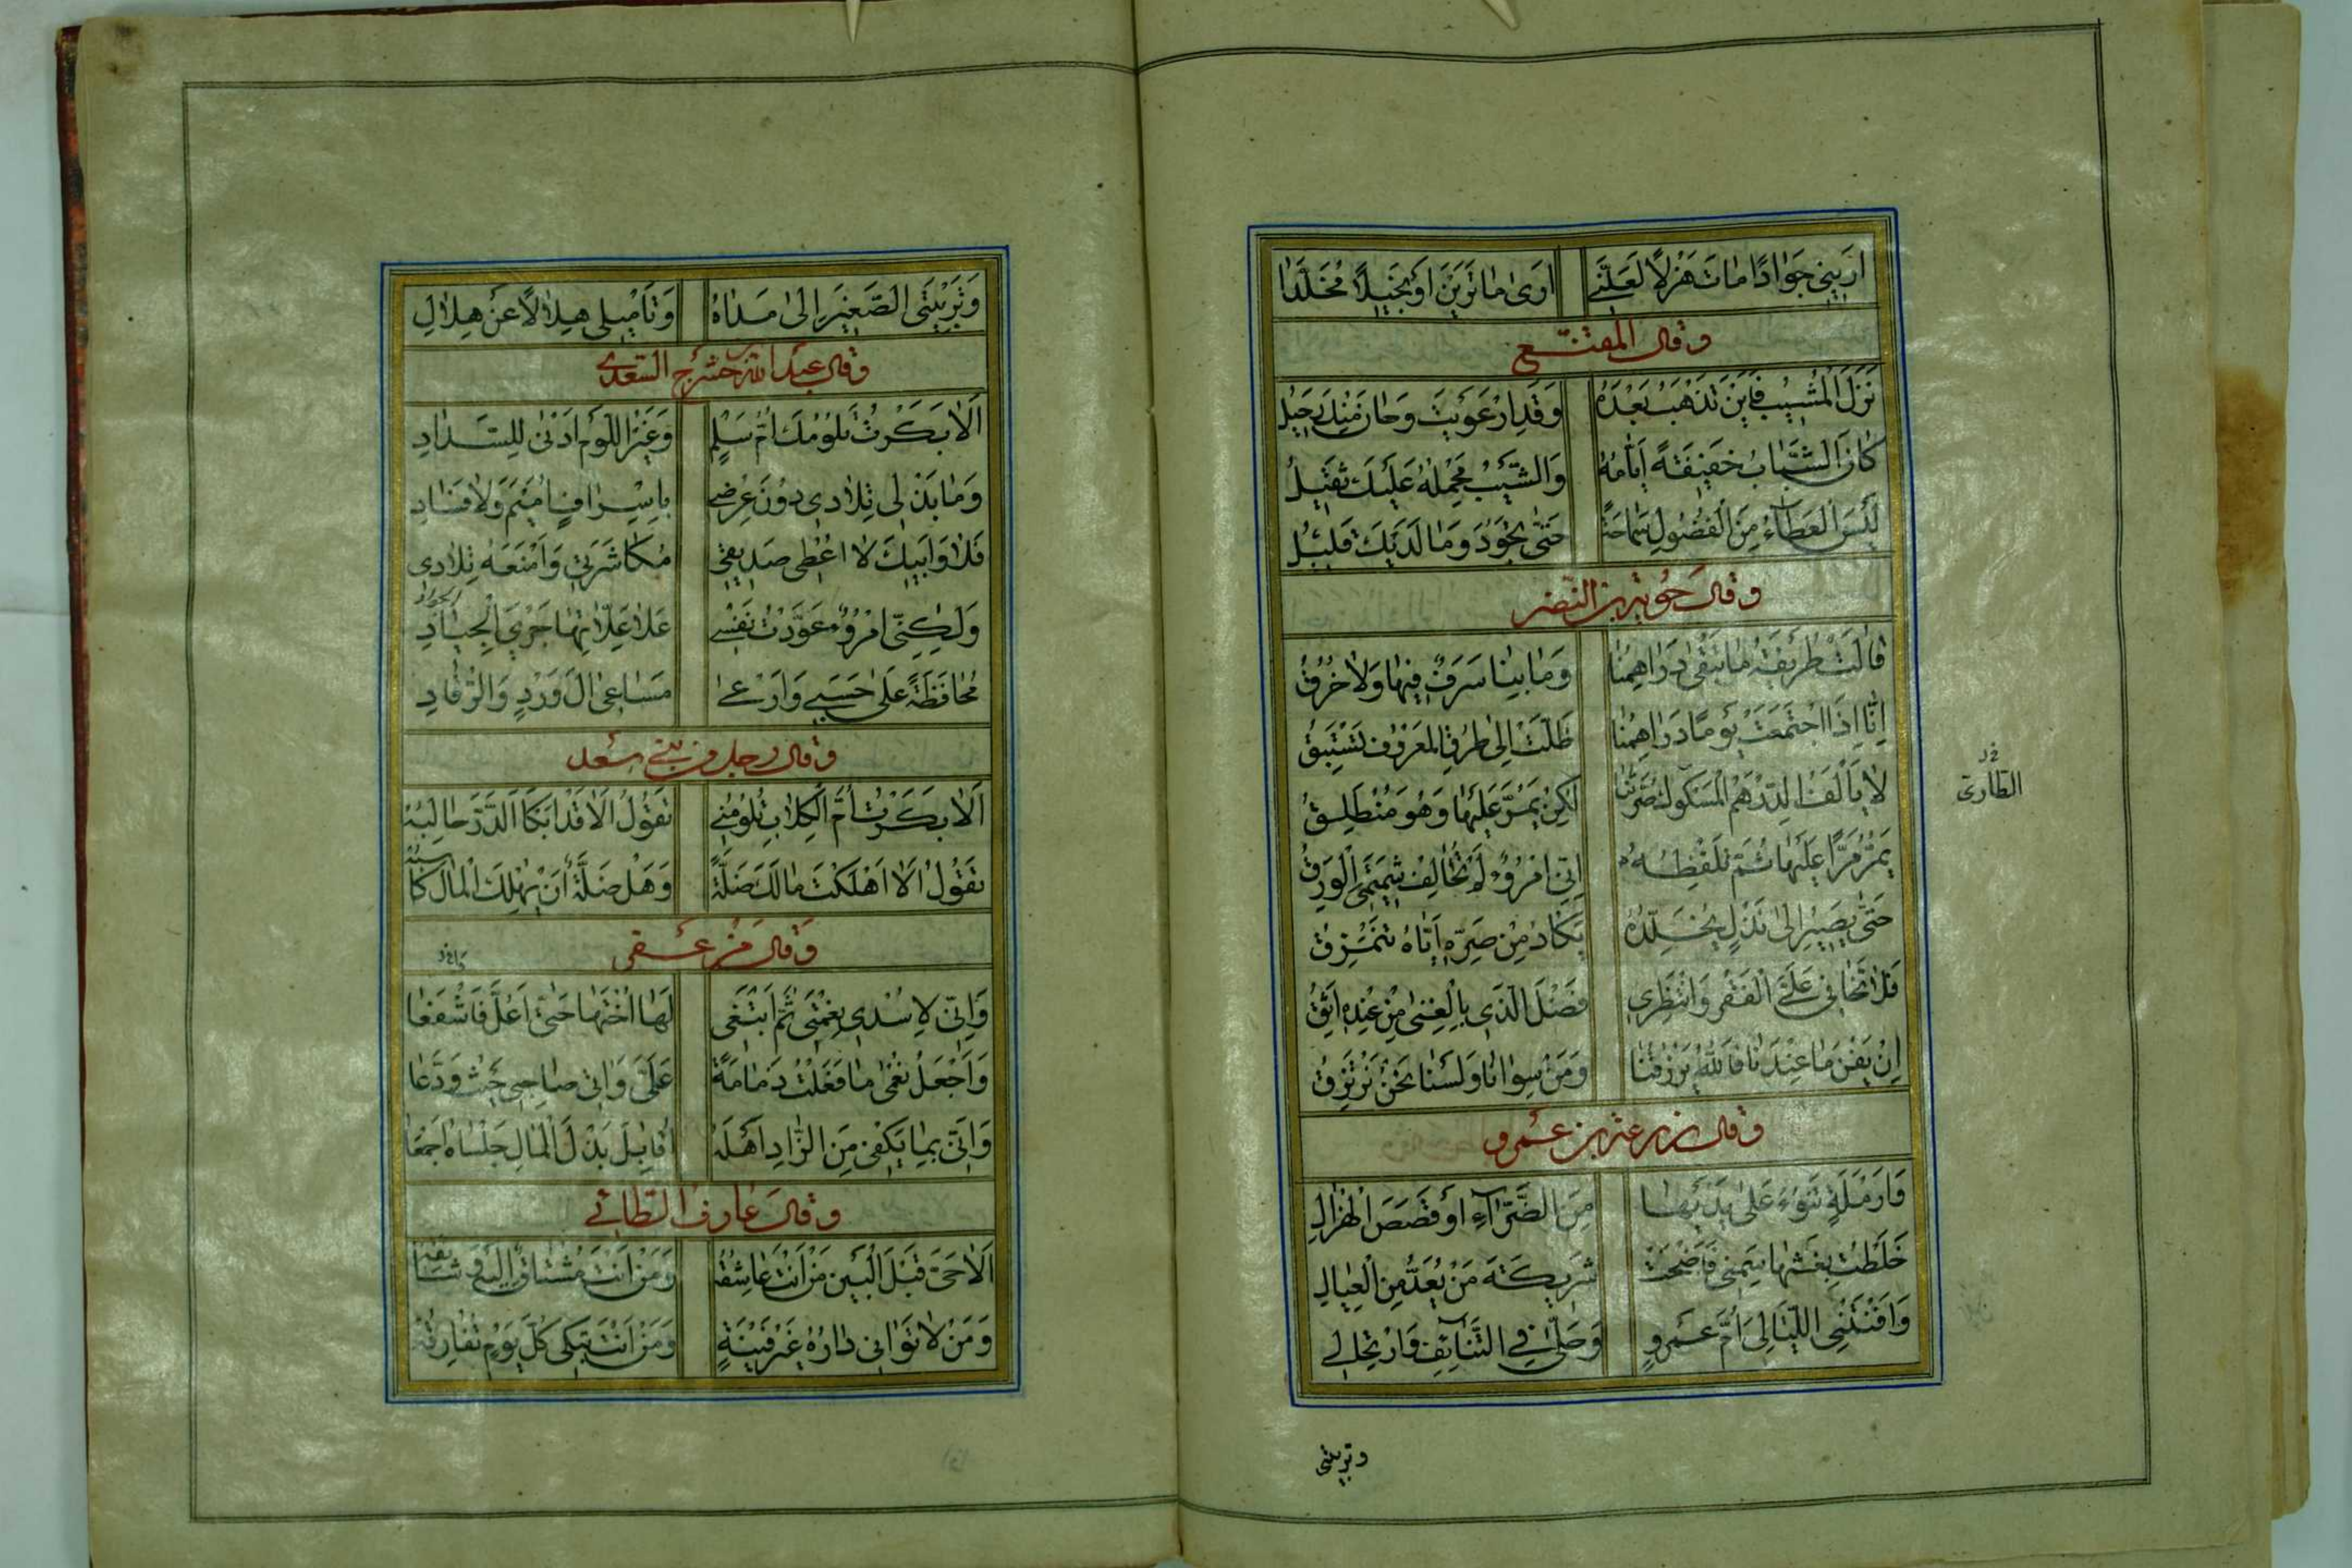 اَرِينِي جَوَادًا مَاتَ هَزْلًا لَعَلَّنِي اَرَى مَا تَرَيْنَ اَوْ بَخِيلًا مُخَلَّدَا
وقال المقنّع
نَزَلَ الْمَشِيبُ فَاَيْنَ تَذْهَبُ بَعْدَهُ وَقَدِ ارْعَوَيْتَ وَحَانَ مِنْكَ رَحِيلُ
كَانَ الشَّبَابُ خَفِيفَةً اَيَّامُهُ وَالشَّيْبُ مَحْمِلُهُ عَلَيْكَ ثَقِيلُ
لَيْسَ الْعَطَاءُ مِنَ الْفُضُولِ سَمَاحَةً حَتَّى تَجُودَ وَمَا لَدَيْكَ قَلِيلُ
وقال جؤية بن النضر
قَالَتْ طُرَيْفَةُ مَا تَبْقَى دَرَاهِمُنَا وَمَا بِنَا سَرَفٌ فِيهَا وَلَا خُرُقُ
اِنَّا اِذَا اجْتَمَعَتْ يَوْمًا دَرَاهِمُنَا ظَلَّتْ اِلَى طُرُقِ الْمَعْرُوفِ تَسْتَبِقُ
لَا يَأْلَفُ الدِّرْهَمُ الْمَسْكُوكُ صُرَّتَنَا لَكِنْ يَمُرُّ عَلَيْهَا وَهُوَ مُنْطَلِقُ
الطاري
يَمُرُّ مَرًّا عَلَيْهَا ثُمَّ تَلْفِظُهُ اِنِّي امْرُؤٌ لَمْ تُخَالِفْ شِيمَتِي الْوَرِقُ
حَتَّى يَصِيرَ اِلَى نَذْلٍ يُخَلِّدُهُ يَكَادُ مِنْ صَرِّهِ اِيَّاهُ يَنْمَزِقُ
فَلَا تَخَافِي عَلَيَّ الْفَقْرَ وَانْتَظِرِي فَضْلَ الَّذِي بِالْغِنَى مِنْ عِنْدِهِ اَثِقُ
اِنْ يَفْنَ مَا عِنْدَنَا فَاللهُ يَرْزُقُنَا وَمَنْ سِوَانَا وَلَسْنَا نَحْنُ نَرْتَزِقُ
وقال زرعة بن عمرو
وَاَرْمَلَةٍ تَنُوءُ عَلَى يَدَيْهَا مِنَ الضَّرَّاءِ اَوْ قَصَصِ الْهُزَالِ
خَلَطْتُ بِغَثِّهَا سِمَنِي فَاَضْحَتْ شَرِيكَةَ مَنْ يُعَدُّ مِنَ الْعِيَالِ
وَاَفْنَتْنِي اللَّيَالِي اُمَّ عَمْرٍو وَحَلِّي فِي التَّنَائِفِ وَارْتِحَالِي
وتربيتي
وَتَرْبِيَتِي الصَّغِيرَ اِلَى مَدَاهُ وَتَأْمِيلِي هِلَالًا عَنْ هِلَالِ
وقال عبد الله بن حشرج السعدي
اَلَا بَكَرَتْ تَلُومُكَ اُمُّ سَلْمٍ وَغَيْرُ اللَّوْمِ اَدْنَى لِلسَّدَادِ
وَمَا بَذْلِي تِلَادِي دُونَ عِرْضِي بِاِسْرَافٍ اُمَيْمَ وَلَا فَسَادِ
فَلَا وَاَبِيكَ لَا اُعْطِي صَدِيقِي مُكَاشَرَتِي وَاَمْنَعُهُ تِلَادِي
وَلَكِنِّي امْرُؤٌ عَوَّدْتُ نَفْسِي عَلَى عِلَّاتِهَا جَرْيَ الْجِيَادِ
الجواد
مُحَافَظَةً عَلَى حَسَبِي وَاَرْعَى مَسَاعِيَ اٰلِ وَرْدٍ وَالرُّقَادِ
وقال رجل من بني سعد
اَلَا بَكَرَتْ اُمُّ الْكِلَابِ تَلُومُنِي تَقُولُ اَلَا قَدْ اَبْكَأَ الدَّرَّ حَالِبُهْ
تَقُولُ اَلَا اَهْلَكْتَ مَالَكَ ضَلَّةً وَهَلْ ضَلَّةٌ اَنْ يُهْلِكَ الْمَالَ كَاسِبُهْ
وقال مزعفر
وَاِنِّي لَاُسْدِي نِعْمَتِي ثُمَّ اَبْتَغِي لَهَا اُخْتَهَا حَتَّى اَعُلَّ فَاَشْفَعَا
وَاَجْعَلُ نُعْمَى مَا فَعَلْتُ ذَمَامَةً عَلَيَّ وَاٰتِي صَاحِبِي حَيْثُ وَدَّعَا
وَاِنِّي بِمَا يَكْفِي مِنَ الزَّادِ اَهْلَهُ اُقَابِلُ بَذْلَ الْمَالِ جَلْسَاهُ اَجْمَعَا
وقال عارف الطائي
اَلَا حَيِّ قَبْلَ الْبَيْنِ مَنْ اَنْتَ عَاشِقُهْ وَمَنْ اَنْتَ مُشْتَاقٌ اِلَيْهِ وَشَائِقُهْ
وَمَنْ لَا تُوَاتِي دَارُهُ غَيْرَ فَيْنَةٍ وَمَنْ اَنْتَ تَبْكِي كُلَّ يَوْمٍ تُفَارِقُهْ